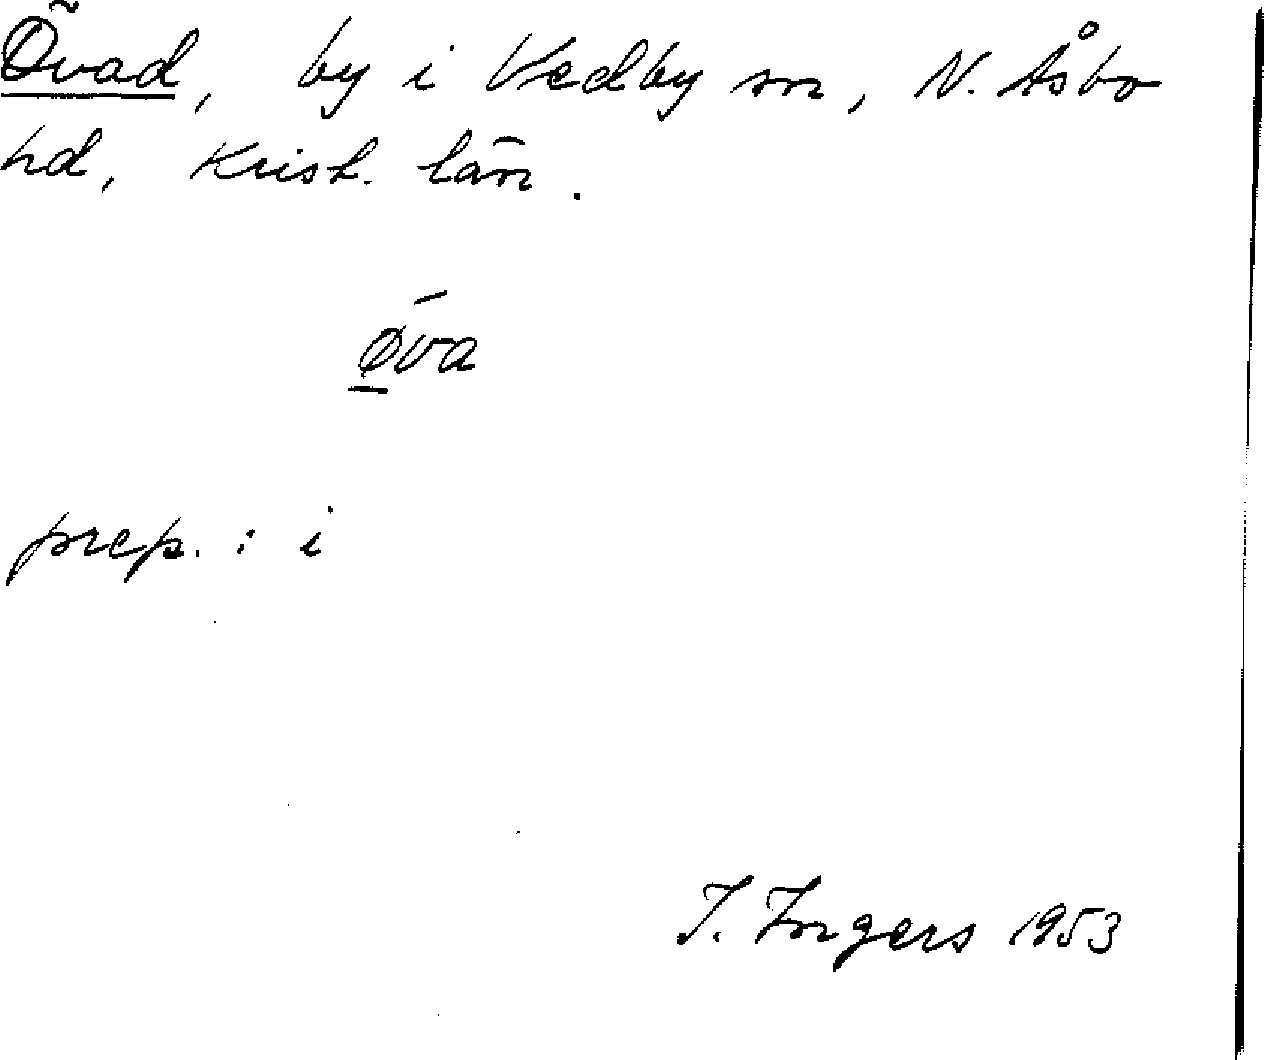 Övad, by i Vedby sn, N. Åsbo
hd, Krist. län.
ǿ̱va
prep. : i
I. Ingers 1953